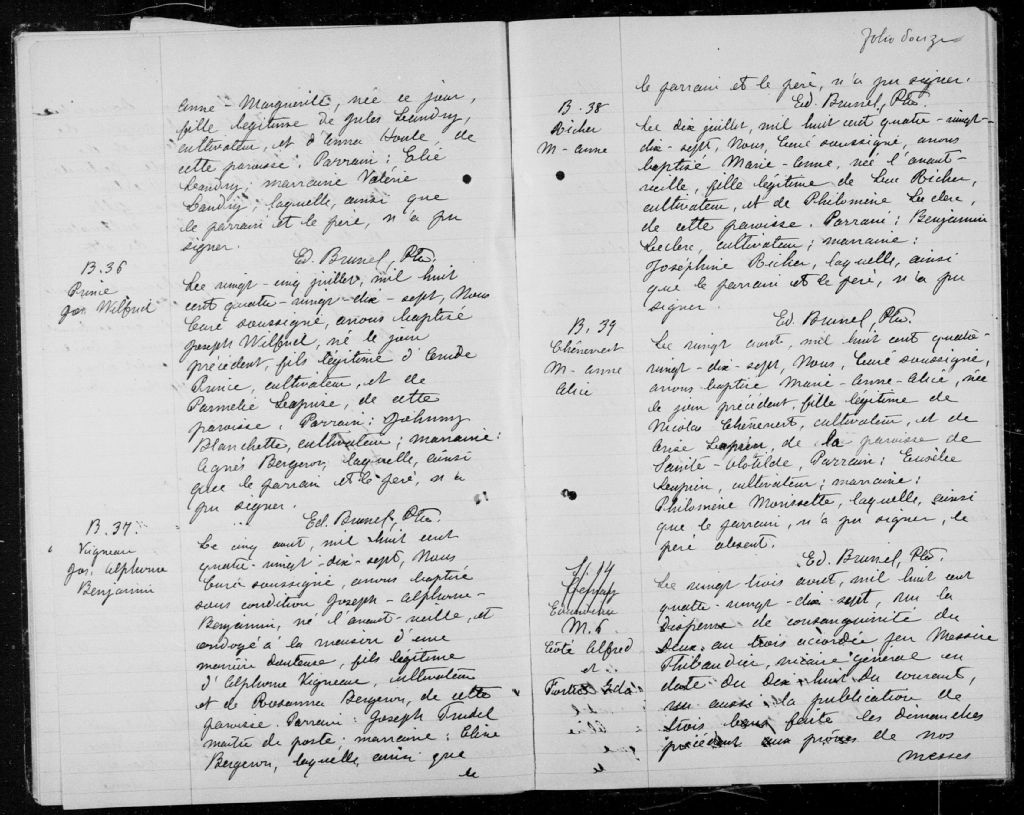 Anne-Marguerite, née ce jour,
fille légitime de Jules Landry,
cultivateur, et d'Anna Houle de
cette paroisse. Parrain: Elie
Landry; marraine Valérie
Landry; laquelle, ainsi que
le parrain et le père, n'a pu
signer.
Ed. Brunel, Ptre.
B. 36
Prince
Jos. Wilfrid
Le vingt-cinq juillet, mil huit
cent quatre-vingt-dix-sept, Nous
Curé soussigné, avons baptisé
Joseph Wilfrid, né le jour
précédent, fils légitime d'
Prince, cultivateur, et de
Parmélie Laprise, de cette
paroisse. Parrain: Johnny
Blanchette, cultivateur; marraine:
Agnès Bergeron, laquelle, ainsi
que le parrain et le père, n'a
pu signer.
Ed. Brunel, Ptre.
B. 37.
Vigneau
Jos. Alphonse
Benjamin
Le cinq aout, mil huit cent
quatre-vingt-dix-sept, Nous
Curé soussigné, avons baptisé
sous condition Joseph-Alphonse-
Benjamin, né l'avant-veille, et
ondoyé à la maison d'une
manière douteuse, fils légitime
d'Alphonse Vigneau, cultivateur
et de Rosanna Bergeron, de cette
paroisse. Parrain: Joseph Trudel
maître de poste; marraine: Elise
Bergeron, laquelle, ainsi que
le
Folio onze
le parrain et le père, n'a pu signer.
Ed. Brunel, Ptre.
B. 38
Richer
M-anne
Le dix juillet, mil huit cent quatre-vingt-
dix-sept, Nous, Curé soussigné, avons
baptisé Marie-Anne, née l'avant-
veille, fille légitime de Luc Richer,
cultivateur, et de Philomène Leclerc,
de cette paroisse. Parrain: Benjamin
Leclerc, cultivateur; marraine:
Joséphine Richer, laquelle, ainsi
que le parrain et le père, n'a pu
signer.
Ed. Brunel, Ptre.
B. 39
Chênevert
M-anne
Alice
Le vingt aout, mil huit cent quatre-
vingt-dix-sept, Nous, Curé soussigné,
avons baptisé Marie-Anne-Alice, née
le jour précédent, fille légitime de
Nicolas Chênevert, cultivateur, et de
de la paroisse de
Sainte-Clotilde, Parrain: Eusèbe
cultivateur; marraine:
Philomène Morissette, laquelle, ainsi
que le parrain, n'a pu signer, le
père absent.
Ed. Brunel, Ptre.
M. 6
Côté Alfred
et
Fortier
Le vingt trois aout, mil huit cent
quatre-vingt-dix-sept, vu la
dispense de consanguinité du
deux au trois accordée par Messire
Thibaudier, vicaire général en
date du dix-huit du courant,
vu aussi la publication de
trois bans faite les dimanches
précédent aux prônes de nos
messes